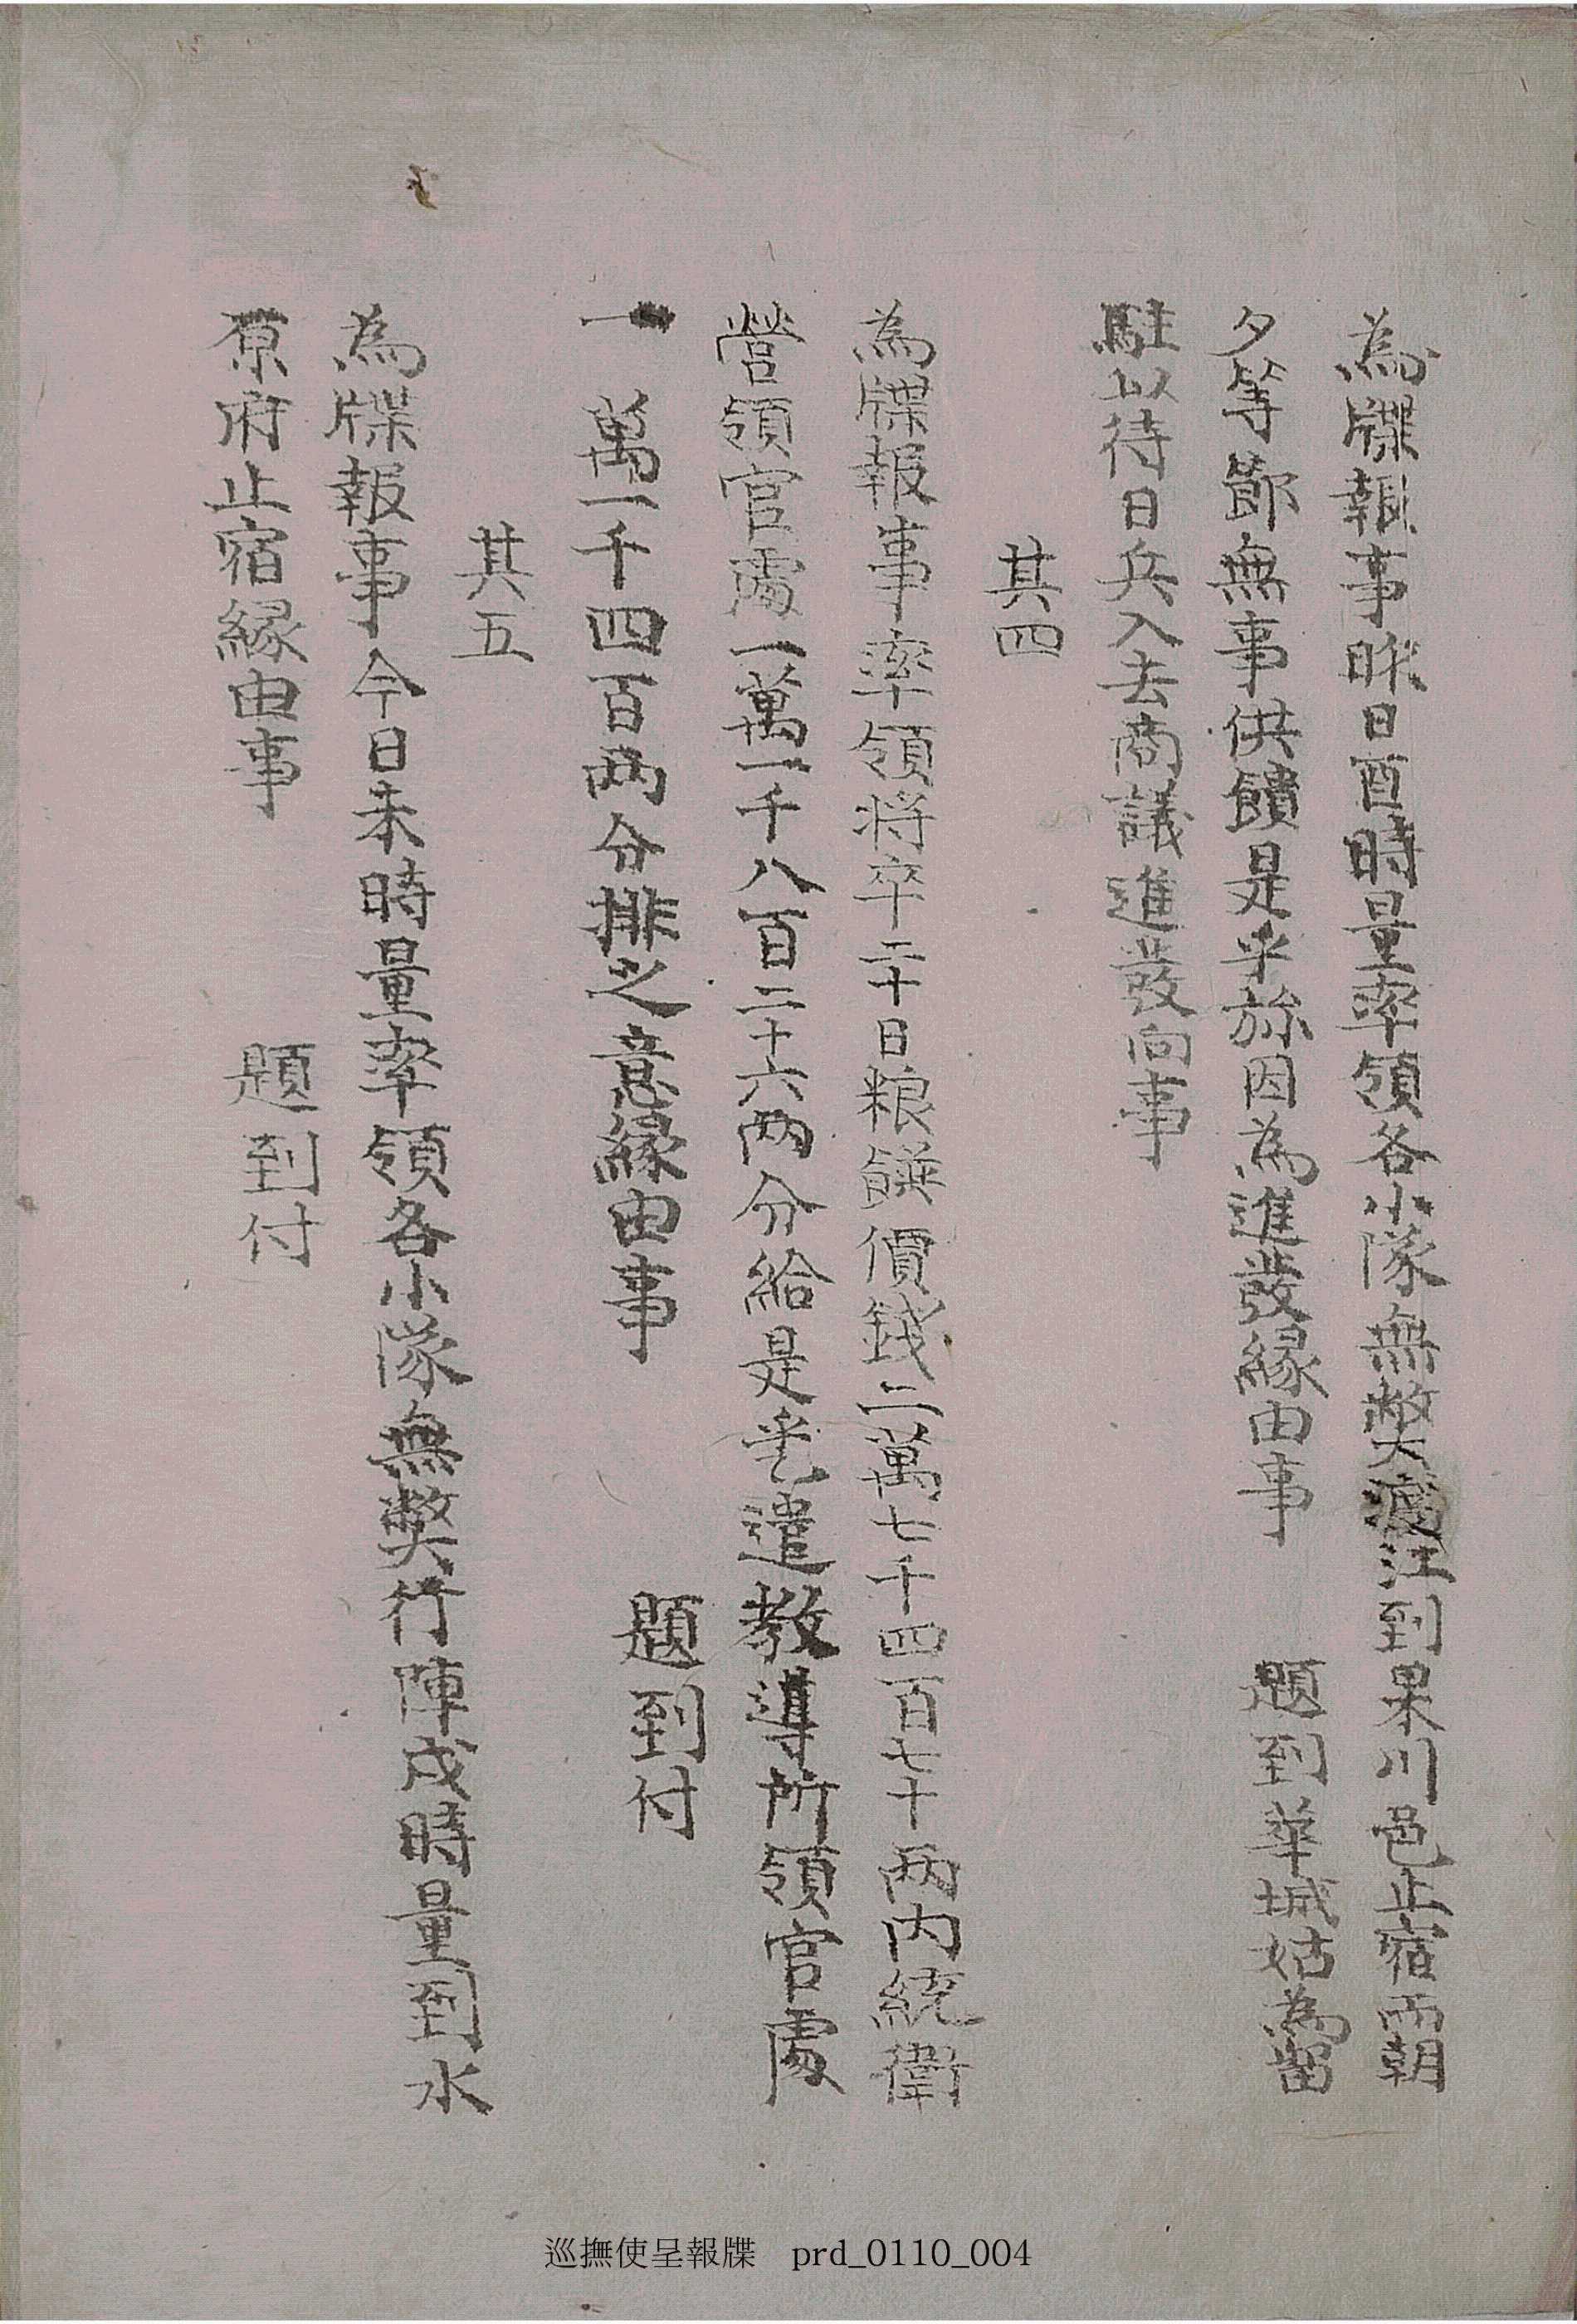 為牒報事昨日酉時量率領各小隊無弊大渡江到果川邑止宿而朝
夕等節無事供饋是乎旀因為進發緣由事　題到華城姑為留
駐以待日兵入去商議進發向事
其四
為牒報事率領將卒二十日粮饌價錢二萬七千四百七十兩內統衛
營領官處一萬一千八百二十六兩分給是乎遣教導所領官處
一萬一千四百兩分排之意緣由事　題到付
其五
為牒報事今日未時量率領各小隊無弊行陣戌時量到水
原府止宿緣由事　題到付
巡撫使呈報牒　prd_0110_004